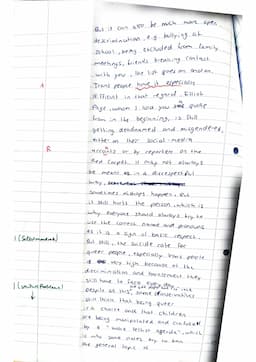 But it can also be much more open
discrimination, e.g. bullying at
school, being excluded from family
meetings, friends breaking contact
with you, the list goes on and on.
Trans people have it especially
A
difficult in that regard. Elliot
Page, whom I told you quote
from in the beginning, is still
getting deadnamed and misgendered,
either on their social-media
R
accounts or by reporters on the
Red Carpet. It may not always
be meant in a disrespectful
way,
sometimes always happens. But
it still hurts the person, which is
why everyone should always try to
use the correct name and pronouns
as it is a sign of basic respect.
But still, the suicide rate for
queer people, especially trans people
is very high because of the
discrimination and harassment they
still have to face every day.
people at this, some conservatives
still think that being queer
is a choice and that children
are being manipulated and
by a "woke leftist agenda", which
is why some states try to ban
the general topic of